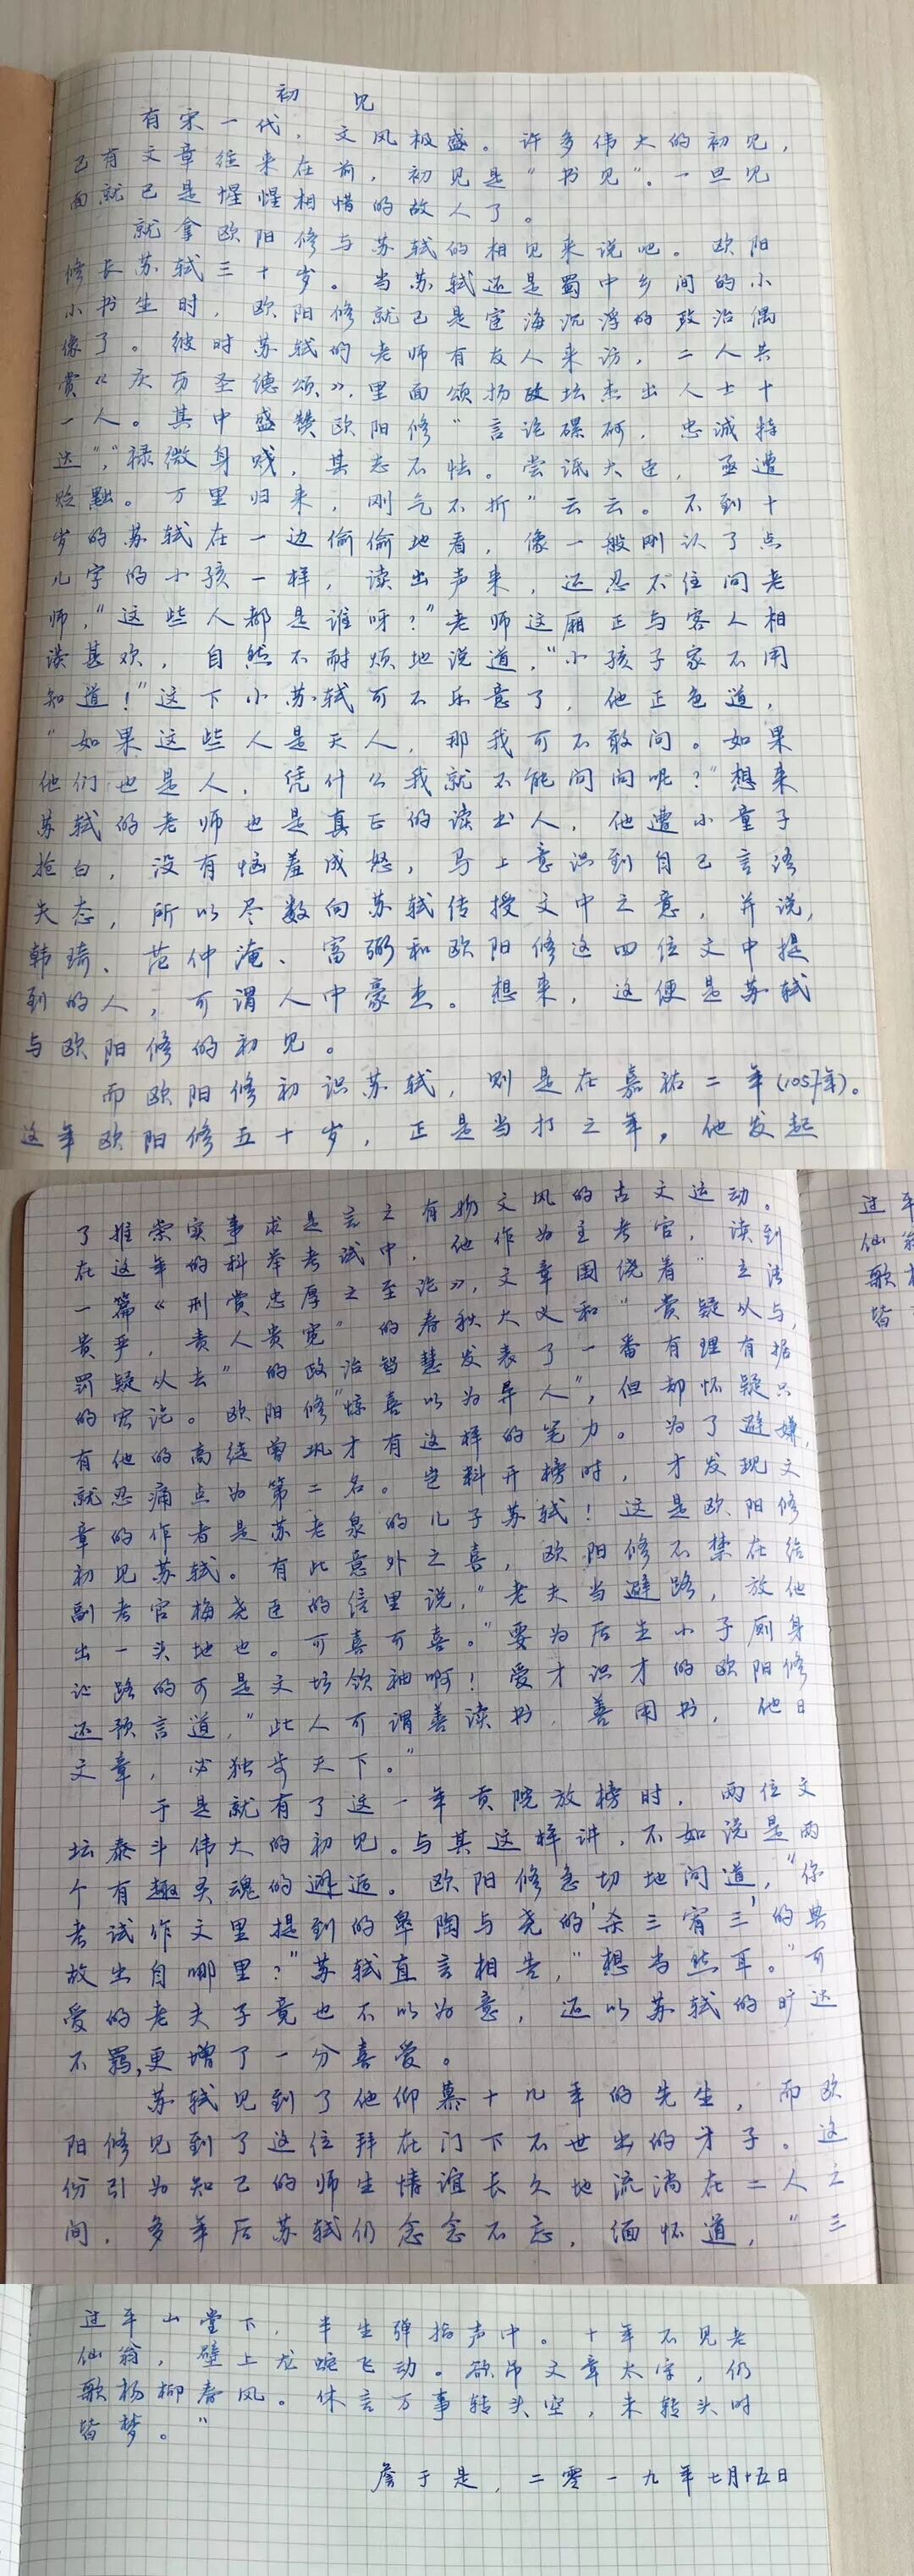 初 见
有宋一代，文风极盛。许多伟大的初见，
已有文章往来在前，初见是“书见”。一旦见
面就已是惺惺相惜的故人了。
就拿欧阳修与苏轼的相见来说吧。欧阳
修长苏轼三十岁。当苏轼还是蜀中乡间的小
小书生时，欧阳修就已是宦海沉浮的政治偶
像了。彼时苏轼的老师有友人来访，二人共
赏《庆历圣德颂》，里面颂扬政坛杰出人士十
一人。其中盛赞欧阳修“言论磥砢，忠诚特
达”，“禄微身贱，其志不怯。尝诋大臣，亟遭
贬黜。万里归来，刚气不折”云云。不到十
岁的苏轼在一边偷偷地看，像一般刚认了点
儿字的小孩一样，读出声来，还忍不住问老
师，“这些人都是谁呀？”老师这厢正与客人相
谈甚欢，自然不耐烦地说道，“小孩子家不用
知道！”这下小苏轼可不乐意了，他正色道，
“如果这些人是天人，那我可不敢问。如果
他们也是人，凭什么我就不能问问呢？”想来
苏轼的老师也是真正的读书人，他遭小童子
抢白，没有恼羞成怒，马上意识到自己言语
失态，所以尽数向苏轼传授文中之意，并说，
韩琦、范仲淹、富弼和欧阳修这四位文中提
到的人，可谓人中豪杰。想来，这便是苏轼
与欧阳修的初见。
而欧阳修初识苏轼，则是在嘉祐二年(1057年)。
这年欧阳修五十岁，正是当打之年，他发起
了推崇实事求是言之有物文风的古文运动。
在这年的科举考试中，他作为主考官，读到
一篇《刑赏忠厚之至论》，文章围绕着“立法
贵严，责人贵宽”的春秋大义和“赏疑从与，
罚疑从去”的政治智慧发表了一番有理有据
的宏论。欧阳修“惊喜以为异人”，但却怀疑只
有他的高徒曾巩才有这样的笔力。为了避嫌，
就忍痛点为第二名。岂料开榜时，才发现文
章的作者是苏老泉的儿子苏轼！这是欧阳修
初见苏轼。有此意外之喜，欧阳修不禁在给
副考官梅尧臣的信里说，“老夫当避路，放他
出一头地也。可喜可喜。”要为后生小子厕身
让路的可是文坛领袖啊！爱才识才的欧阳修
还预言道，“此人可谓善读书，善用书，他日
文章，必独步天下。”
于是就有了这一年贡院放榜时，两位文
坛泰斗伟大的初见。与其这样讲，不如说是两
个有趣灵魂的邂逅。欧阳修急切地问道，“你
考试作文里提到的皋陶与尧的‘杀三宥三’的典
故出自哪里？”苏轼直言相告，“想当然耳。”可
爱的老夫子竟也不以为意，还以苏轼的旷达
不羁，更增了一分喜爱。
苏轼见到了他仰慕十几年的先生，而欧
阳修见到了这位拜在门下不世出的才子。这
份引为知己的师生情谊长久地流淌在二人之
间，多年后苏轼仍念念不忘，缅怀道，“三
过平山堂下，半生弹指声中。十年不见老
仙翁，壁上龙蛇飞动。欲吊文章太守，仍
歌杨柳春风。休言万事转头空，未转头时
皆梦。”
詹于是，二零一九年七月十五日